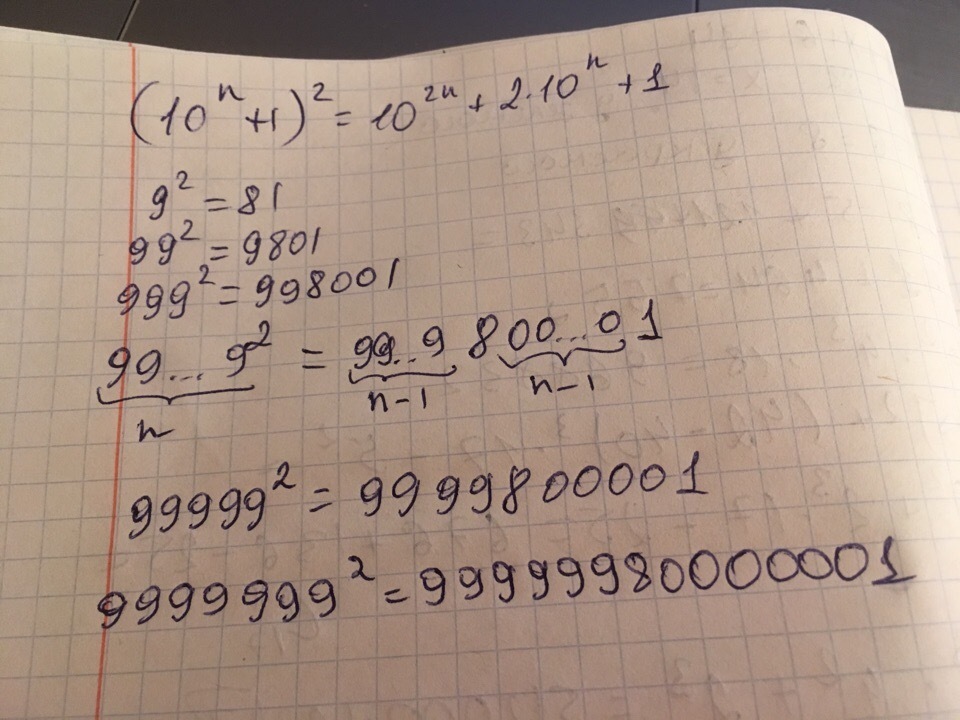 (10^n + 1)^2 = 10^{2n} + 2·10^n + 1
9^2 = 81
99^2 = 9801
999^2 = 998001
99...9^2 = 99...9 8 00...0 1
n n-1 n-1
99999^2 = 9999800001
9999999^2 = 99999980000001